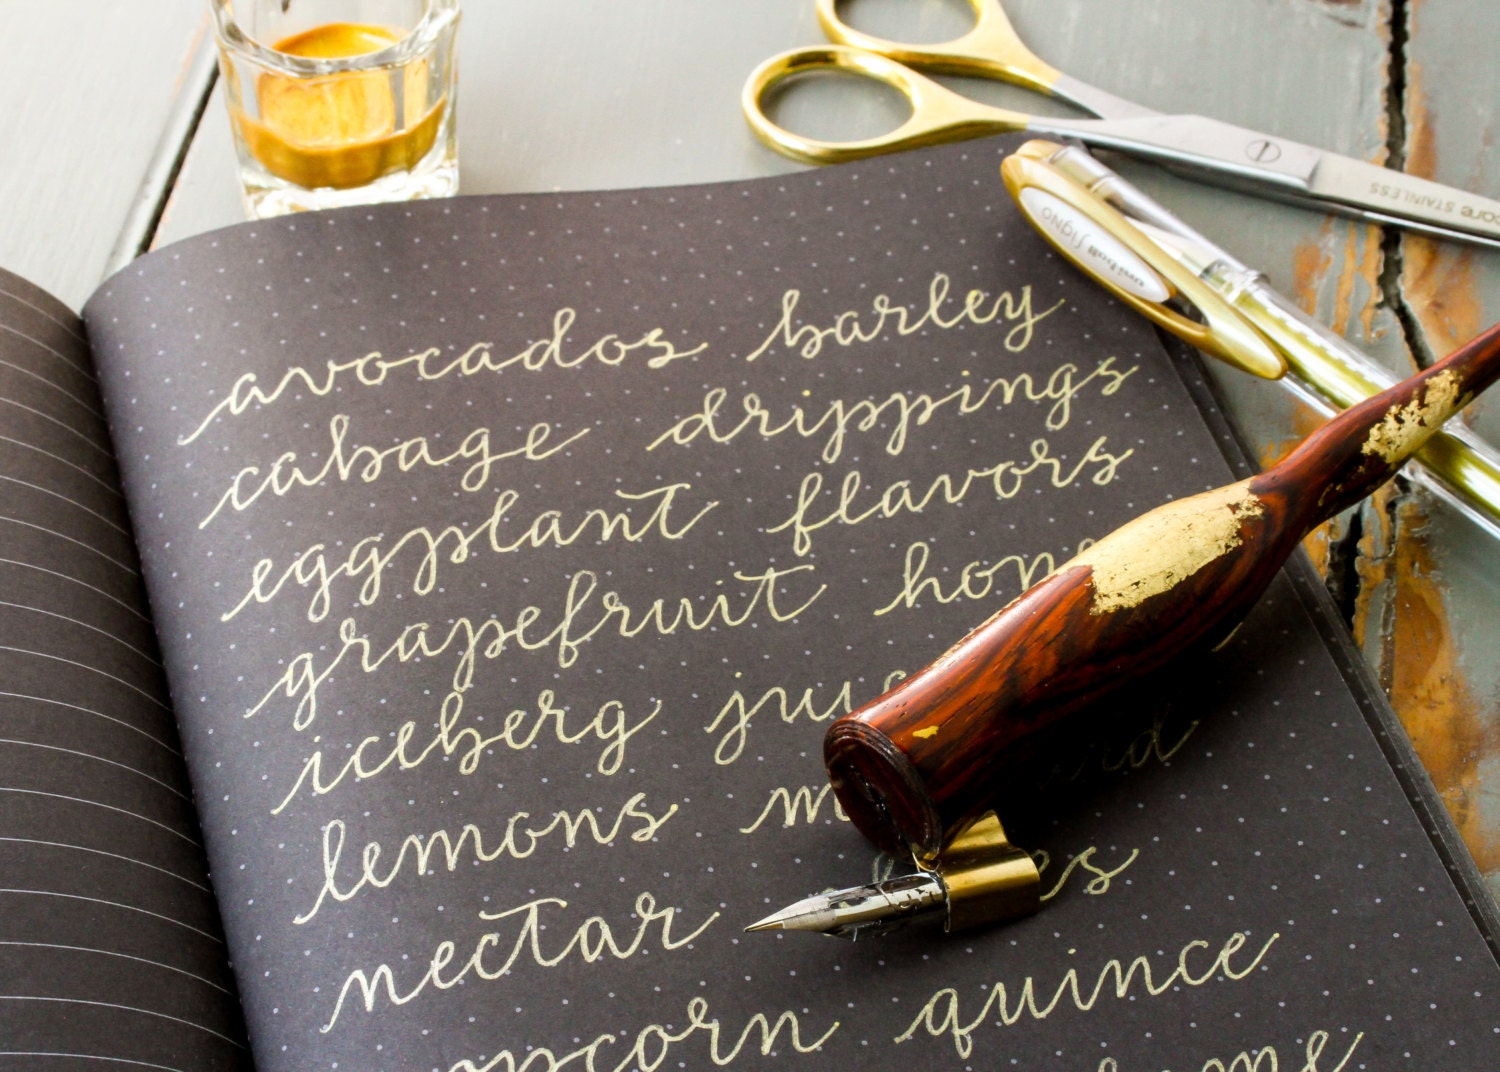 avocados barley
cabage drippings
eggplant flavors
grapefruit
iceberg
lemons
nectar
quince
uni-ball Signo
STAINLESS